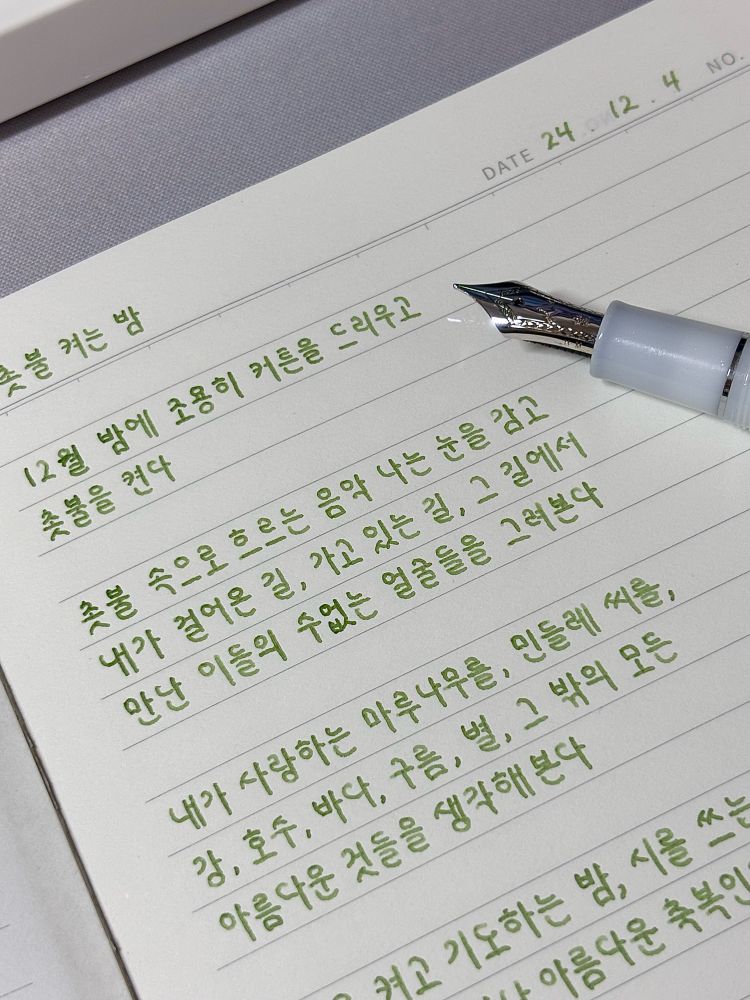 DATE 24 . 12 . 4 NO.
촛불 켜는 밤
12월 밤에 조용히 커튼을 드리우고
촛불을 켠다
촛불 속으로 흐르는 음악 나는 눈을 감고
내가 걸어온 길, 가고 있는 길, 그 길에서
만난 이들의 수없는 얼굴들을 그려본다
내가 사랑하는 마루나무를, 민들레 씨를,
강, 호수, 바다, 구름, 별, 그 밖의 모든
아름다운 것들을 생각해 본다
켜고 기도하는 밤, 시를 쓰는
아름다운 축복인